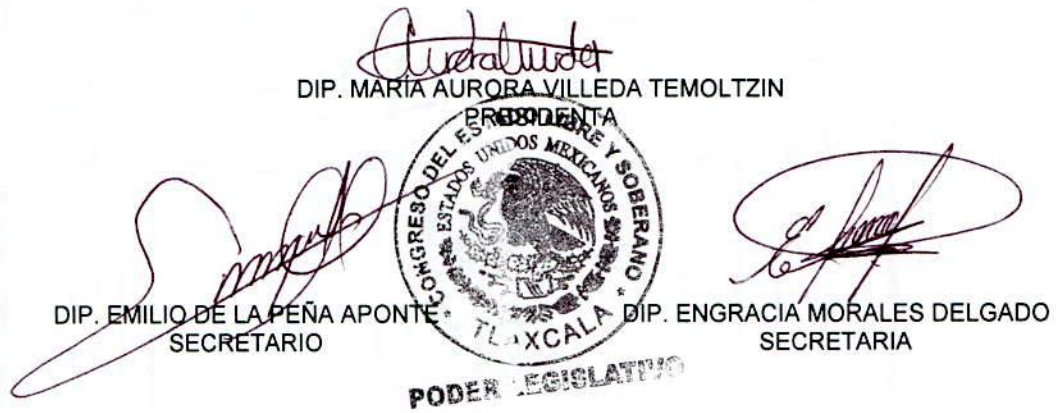 DIP. MARÍA AURORA VILLEDA TEMOLTZIN
PRESIDENTA
CONGRESO DEL ESTADO LIBRE Y SOBERANO
ESTADOS UNIDOS MEXICANOS
TLAXCALA
DIP. EMILIO DE LA PEÑA APONTE
SECRETARIO
DIP. ENGRACIA MORALES DELGADO
SECRETARIA
PODER LEGISLATIVO